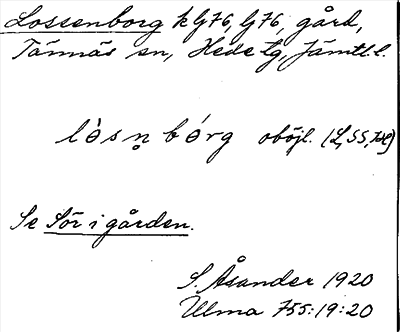 Lossenborg k G76, G76, gård,
Tännäs sn, Hede tg, Jämtl. l.
lòsn̥ bórg oböjl. (L, SS,
Se Sör i gården.
S. Åsander 1920
Ulma 755:19:20